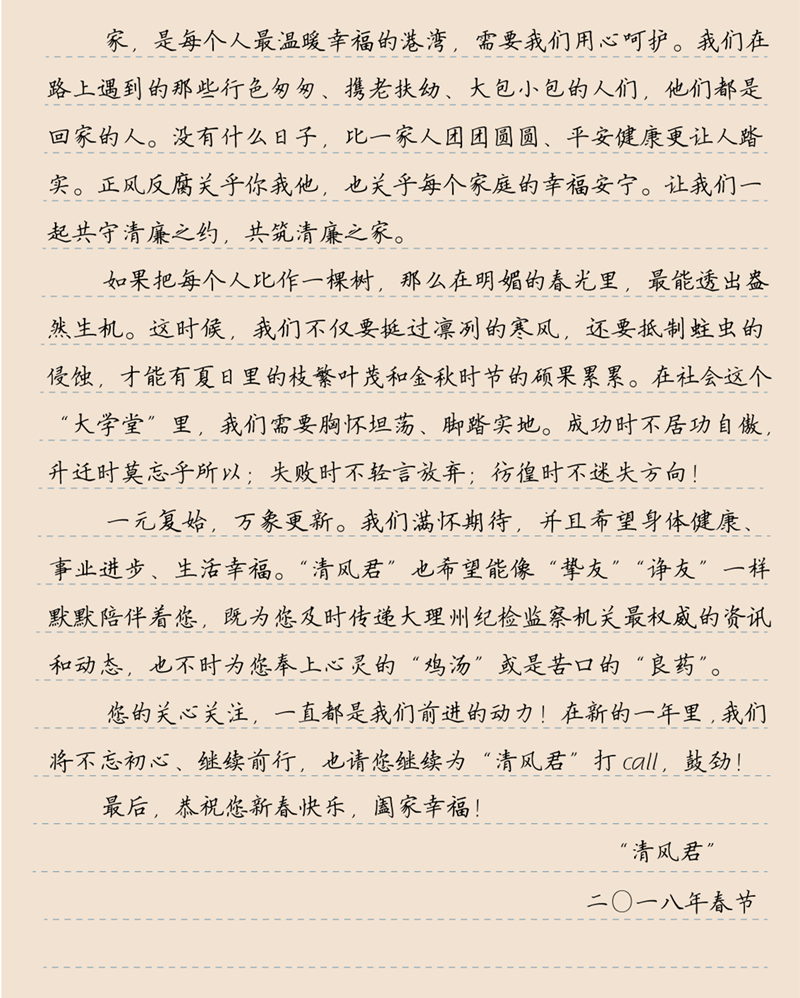 家，是每个人最温暖幸福的港湾，需要我们用心呵护。我们在
路上遇到的那些行色匆匆、携老扶幼、大包小包的人们，他们都是
回家的人。没有什么日子，比一家人团团圆圆、平安健康更让人踏
实。正风反腐关乎你我他，也关乎每个家庭的幸福安宁。让我们一
起共守清廉之约，共筑清廉之家。
如果把每个人比作一棵树，那么在明媚的春光里，最能透出盎
然生机。这时候，我们不仅要挺过凛冽的寒风，还要抵制蛀虫的
侵蚀，才能有夏日里的枝繁叶茂和金秋时节的硕果累累。在社会这个
“大学堂”里，我们需要胸怀坦荡、脚踏实地。成功时不居功自傲，
升迁时莫忘乎所以；失败时不轻言放弃；彷徨时不迷失方向！
一元复始，万象更新。我们满怀期待，并且希望身体健康、
事业进步、生活幸福。“清风君”也希望能像“挚友”“诤友”一样
默默陪伴着您，既为您及时传递大理州纪检监察机关最权威的资讯
和动态，也不时为您奉上心灵的“鸡汤”或是苦口的“良药”。
您的关心关注，一直都是我们前进的动力！在新的一年里，我们
将不忘初心、继续前行，也请您继续为“清风君”打call，鼓劲！
最后，恭祝您新春快乐，阖家幸福！
“清风君”
二〇一八年春节